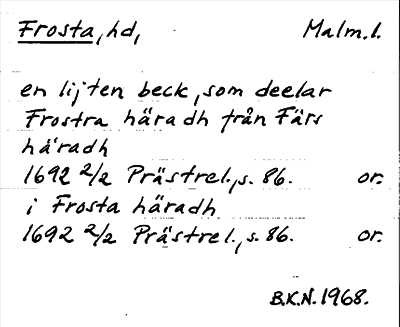 Frosta, hd, Malm.l.
en lijten beck, som deelar
Frostra häradh från Färs
häradh
1692 2/2 Prästrel., s. 86. or.
i Frosta häradh
1692 2/2 Prästrel., s. 86. or.
B.K.N. 1968.